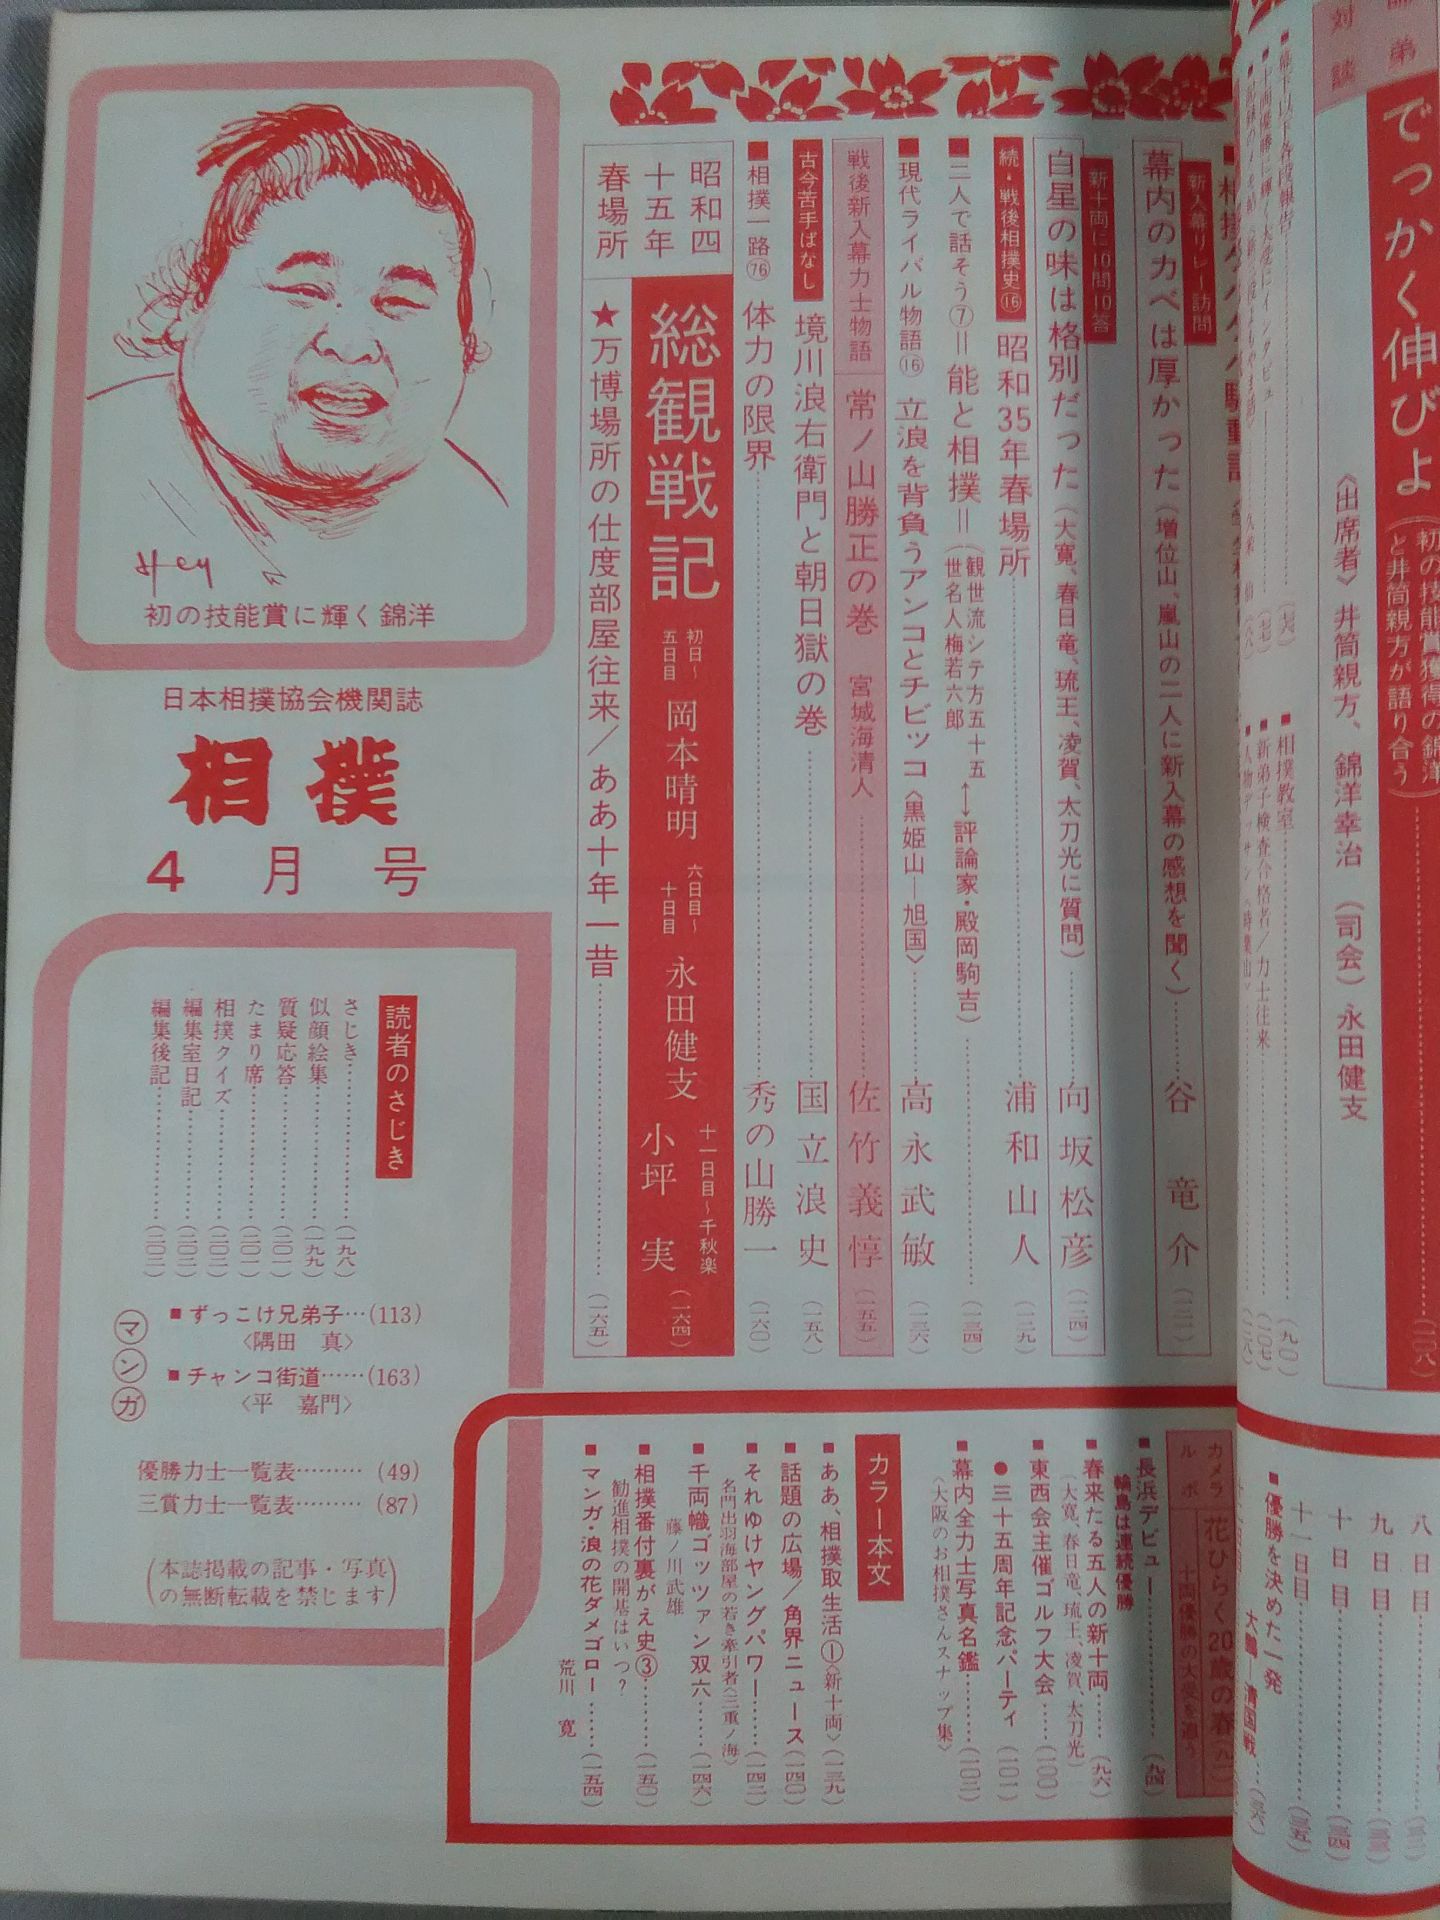 対談
でっかく伸びよ
(初の技能賞獲得の錦洋
と井筒親方が語り合う)
(二〇八)
〈出席者〉井筒親方、錦洋幸治 (司会)永田健支
相撲教室
(九〇)
新弟子検査合格者/力士往来
(二〇七)
新入幕リレー訪問
幕内のカベは厚かった(増位山、嵐山の二人に新入幕の感想を聞く)
谷 竜介
新十両に10問10答
白星の味は格別だった(大寛、春日竜、琉王、凌賀、太刀光に質問)
向坂松彦 (一二四)
続・戦後相撲史⑯ 昭和35年春場所
浦和山人 (一二九)
■二人で話そう⑦=能と相撲=(観世流シテ方五十五世名人梅若六郎↔評論家・殿岡駒吉)
(一三四)
■現代ライバル物語⑯ 立浪を背負うアンコとチビッコ〈黒姫山―旭国〉
高永武敏 (一三六)
戦後新入幕力士物語 常ノ山勝正の巻 宮城海清人
佐竹義惇 (一五五)
古今苦手ばなし 境川浪右衛門と朝日嶽の巻
国立浪史 (一五八)
■相撲一路76 体力の限界
秀の山勝一 (一六〇)
昭和四十五年春場所
総観戦記
初日~五日目 岡本晴明
六日目~十日目 永田健支
十一日目~千秋楽 小坪 実 (一六四)
★万博場所の仕度部屋往来/ああ十年一昔
(一六五)
Hey
初の技能賞に輝く錦洋
日本相撲協会機関誌
相撲
4月号
読者のさじき
さじき (一九八)
似顔絵集 (一九九)
質疑応答 (二〇一)
たまり席 (二〇一)
相撲クイズ (二〇二)
編集室日記 (二〇二)
編集後記 (二〇二)
マンガ
■ずっこけ兄弟子…(113)
〈隅田 真〉
■チャンコ街道……(163)
〈平 嘉門〉
優勝力士一覧表………(49)
三賞力士一覧表………(87)
(本誌掲載の記事・写真
の無断転載を禁じます)
八日目
九日目
十日目 (三四)
十一日目 (三五)
■優勝を決めた一発
大鵬―清国戦
カメラルポ 花ひらく20歳の春
十両優勝の大受を追う
■長浜デビュー (九四)
輪島は連続優勝
■春来たる五人の新十両 (九六)
(大寛、春日竜、琉王、凌賀、太刀光)
■東西会主催ゴルフ大会 (一〇〇)
●三十五周年記念パーティ (一〇一)
■幕内全力士写真名鑑 (一〇二)
〈大阪のお相撲さんスナップ集〉
カラー本文
■ああ、相撲取生活①〈新十両〉(一三九)
■話題の広場/角界ニュース (一四〇)
■それゆけヤングパワー (一四二)
名門出羽海部屋の若き牽引者〈三重ノ海〉
■千両幟ゴッツァン双六 (一四六)
藤ノ川武雄
■相撲番付裏がえ史③ (一五〇)
勧進相撲の開基はいつ?
■マンガ・浪の花ダメゴロー (一五四)
荒川 寛